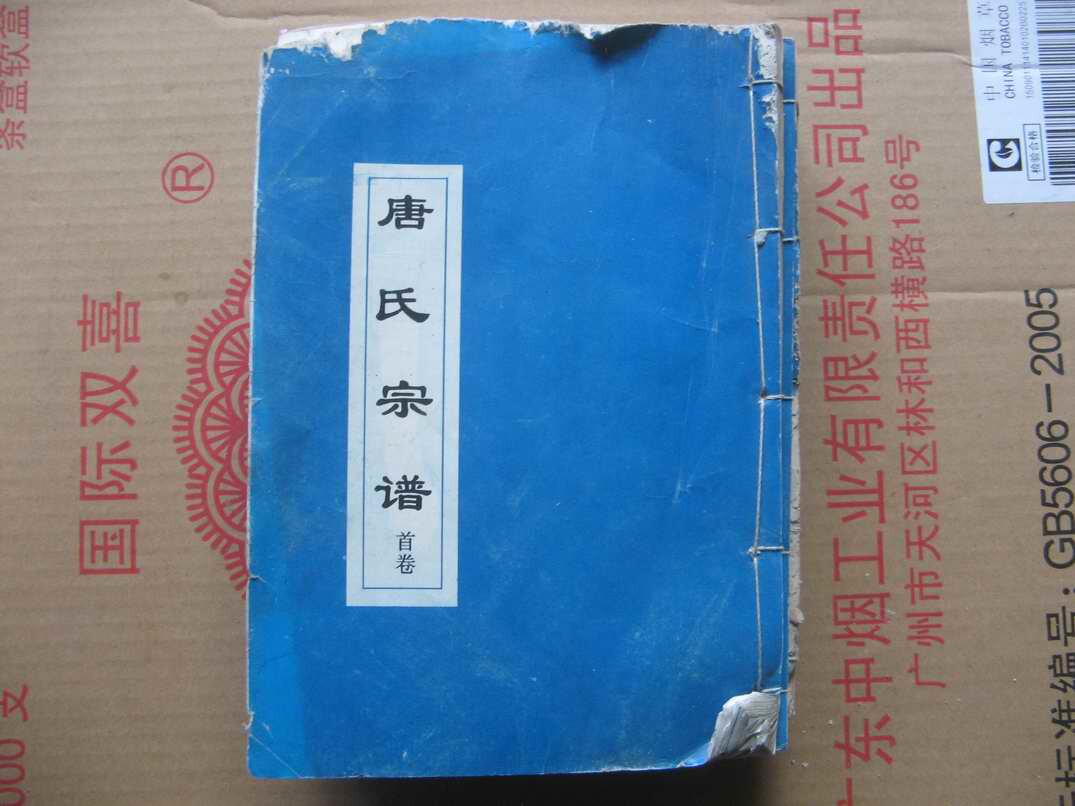 唐氏宗谱
首卷
国际双喜
®
条盒软盒
广东中烟工业有限责任公司出品
广州市天河区林和西横路186号
中国烟草
CHINA TOBACCO
检验合格
标准编号：GB5606－2005
000支